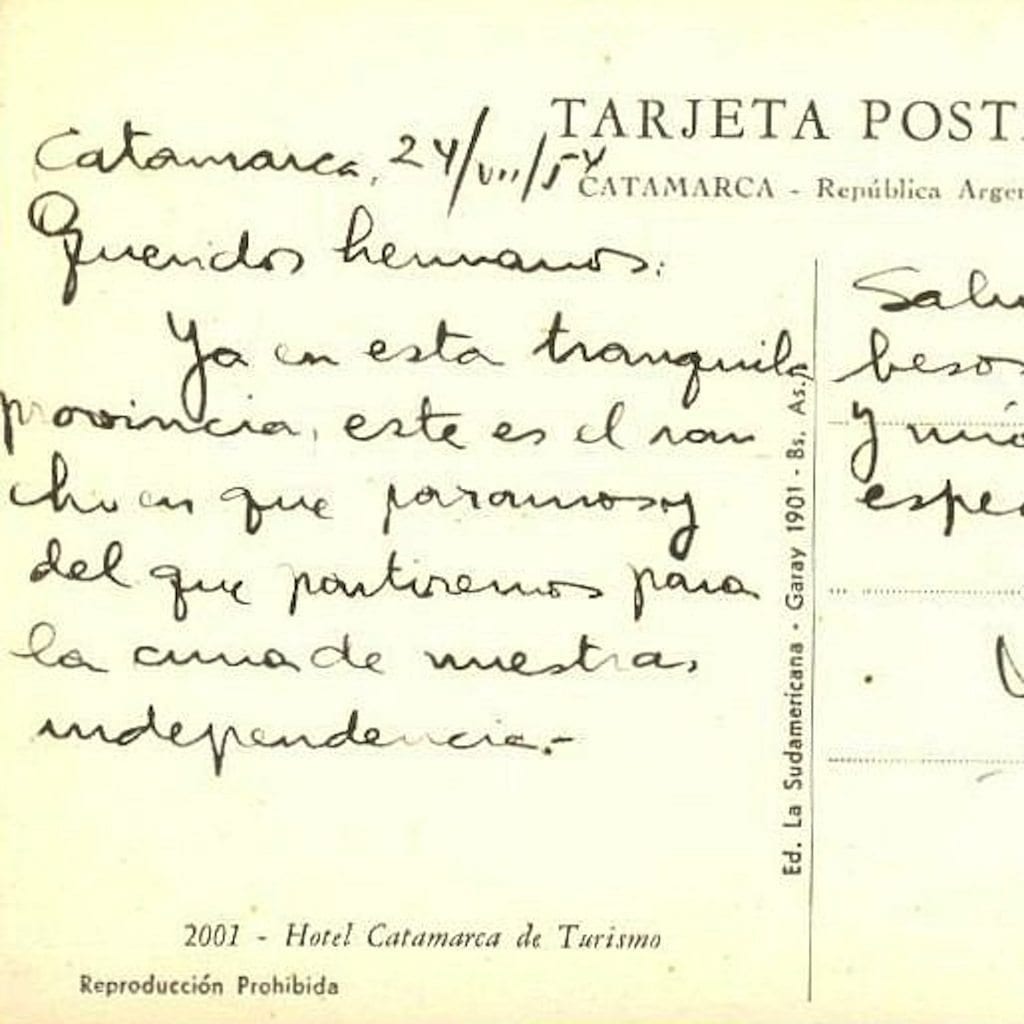 TARJETA POST
CATAMARCA - República Argen
Catamarca, 24/VII/54
Queridos hermanos:
Ya en esta tranquila
provincia, este es el ran
cho en que paramos y
del que partiremos para
la cuna de nuestra
independencia.-
Salu
besos
y
espe
Ed. La Sudamericana - Garay 1901 - Bs. As.
2001 - Hotel Catamarca de Turismo
Reproducción Prohibida